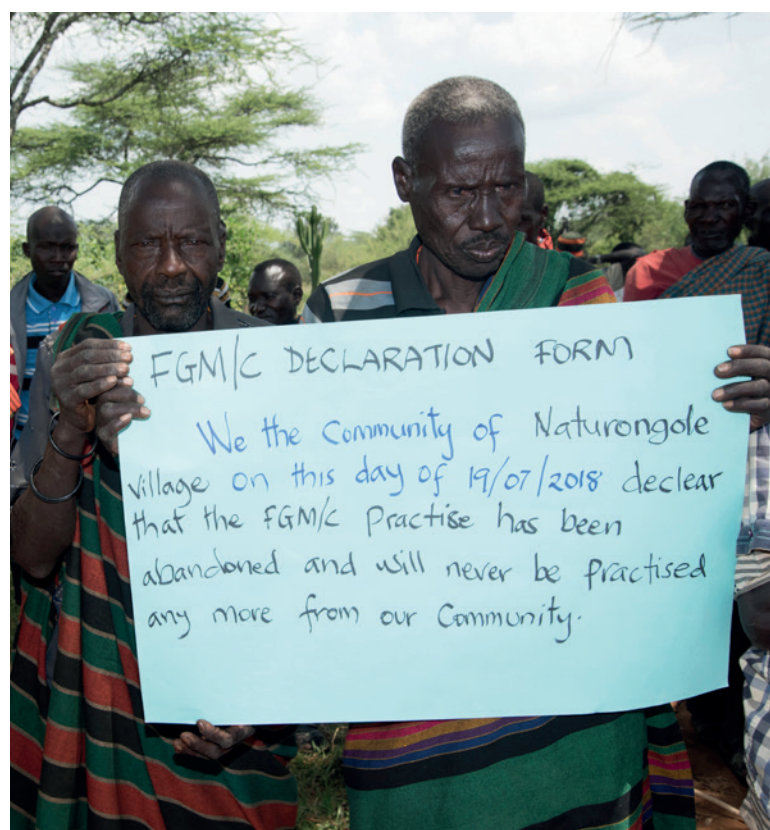 FGM/C DECLARATION FORM
We the Community of Naturongole
village on this day of 19/07/2018 declear
that the FGM/C Practise has been
abandoned and will never be practised
any more from our Community.